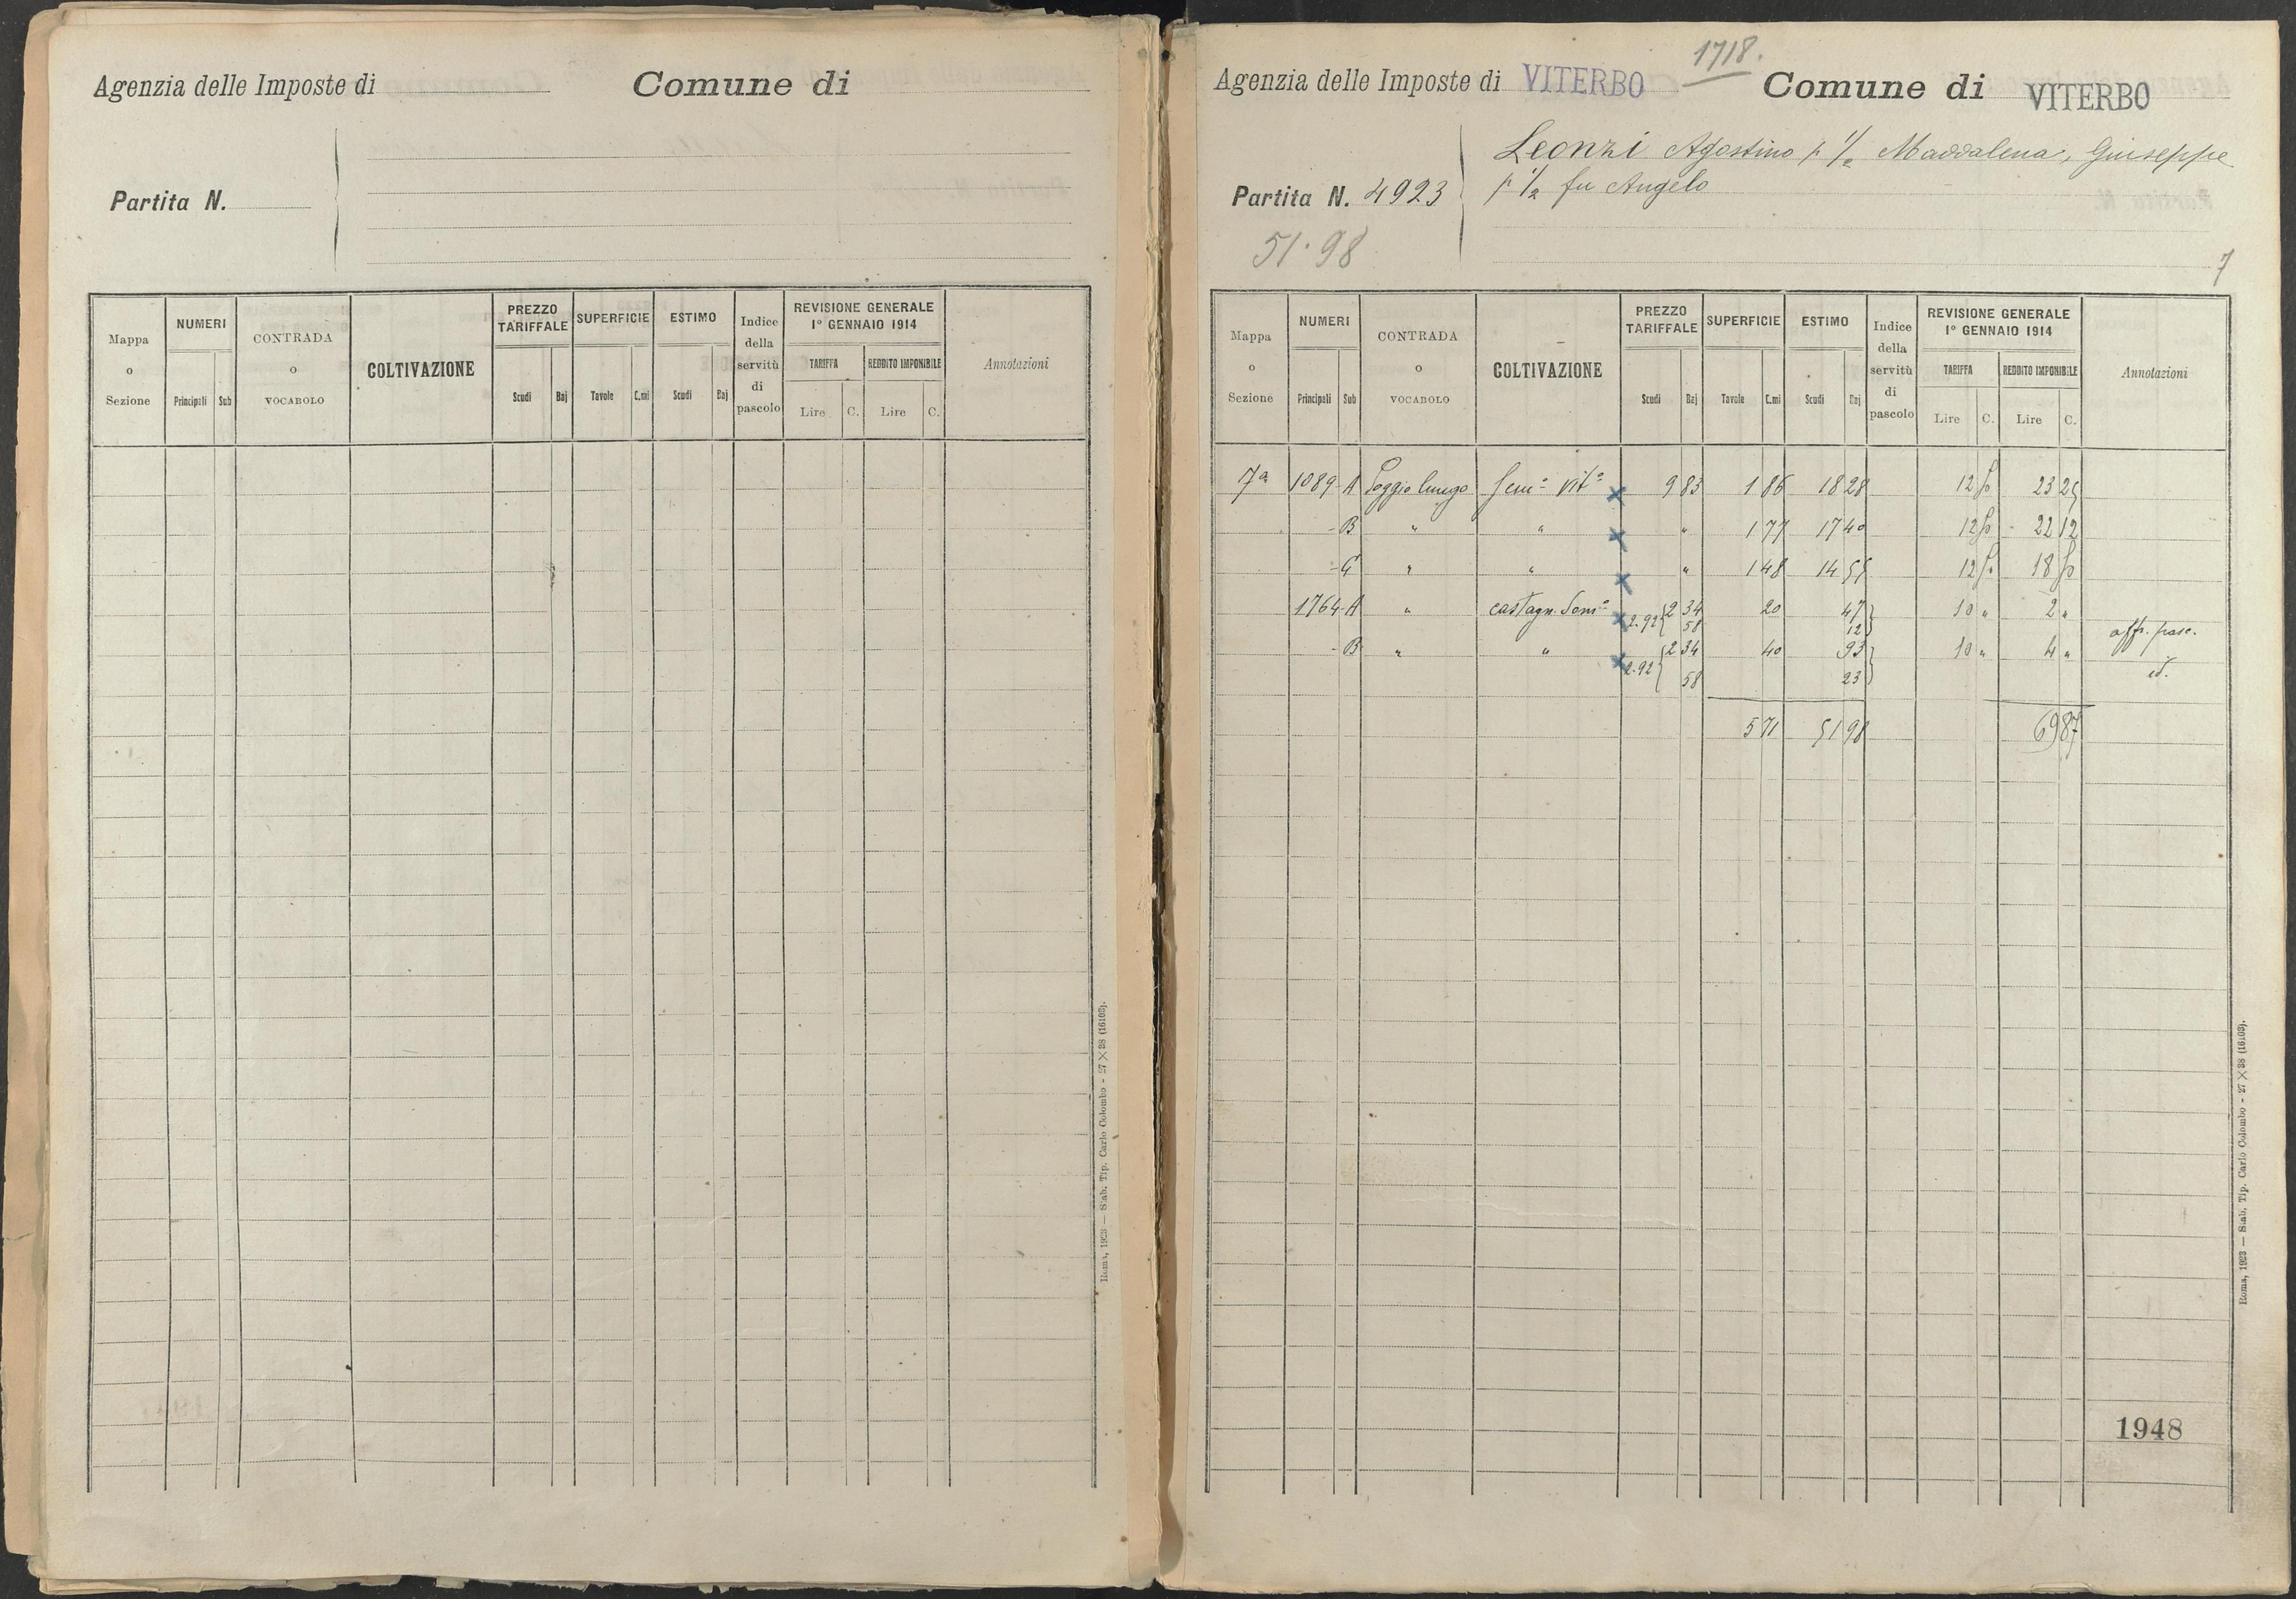 Agenzia delle Imposte di
Comune di
Partita N.
Mappa o Sezione
NUMERI
Principali Sub
CONTRADA o VOCABOLO
COLTIVAZIONE
PREZZO TARIFFALE
Scudi Baj
SUPERFICIE
Tavole C.mi
ESTIMO
Scudi Baj
Indice della servitù di pascolo
REVISIONE GENERALE
1° GENNAIO 1914
TARIFFA
Lire C.
REDDITO IMPONIBILE
Lire C.
Annotazioni
Roma, 1923 — Stab. Tip. Carlo Colombo - 27 X 38 (16103).
1718.
Agenzia delle Imposte di VITERBO Comune di VITERBO
Leonzi Agostino p 1/2 Maddalena, Giuseppe
Partita N. 4923 p 1/2 fu Angelo
51.98
7
Mappa o Sezione
NUMERI
Principali Sub
CONTRADA o VOCABOLO
COLTIVAZIONE
PREZZO TARIFFALE
Scudi Baj
SUPERFICIE
Tavole C.mi
ESTIMO
Scudi Baj
Indice della servitù di pascolo
REVISIONE GENERALE
1° GENNAIO 1914
TARIFFA
Lire C.
REDDITO IMPONIBILE
Lire C.
Annotazioni
7a 1089 A Poggio lungo Sem° Vit° x 9 83 1 86 18 28 12 50 23 25
- B " " x " 1 77 17 40 12 50 22 12
- C " " x " 1 48 14 55 12 50 18 50
1764 A " castagn. Sem° x 2.92 { 2 34 20 47 } 10 " 2 "
58 12 affr. pasc.
- B " " x 2.92 { 2 34 40 93 } 10 " 4 "
58 23 id.
5 71 51 98 69 87
1948
Roma, 1923 — Stab. Tip. Carlo Colombo - 27 X 38 (16103).